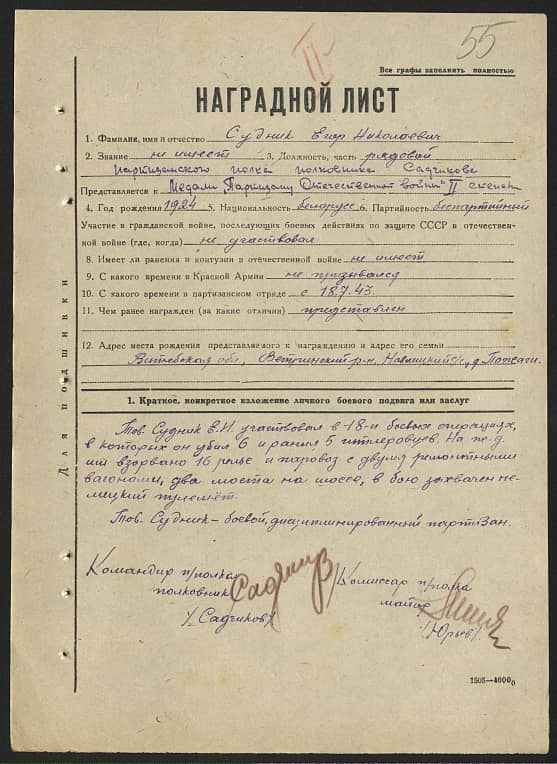 II
55
Все графы заполнять полностью
НАГРАДНОЙ ЛИСТ
1. Фамилия, имя и отчество Судник Егор Николаевич
2. Звание не имеет 3. Должность, часть рядовой
партизанского полка полковника Садчикова
Представляется к Медали Партизану Отечественной войны" II степени
4. Год рождения 1924 5. Национальность беларусс 6. Партийность беспартийный
Участие в гражданской войне, последующих боевых действиях по защите СССР в отечествен-
ной войне (где, когда) не участвовал
8. Имеет ли ранения и контузии в отечественной войне не имеет
9. С какого времени в Красной Армии не призывался
10. С какого времени в партизанском отряде с 18.7.43.
11. Чем ранее награжден (за какие отличии) представлен
12. Адрес места рождения представляемого к награждению и адрес его семьи
Витебская обл., Ветринский р-н, с/с, д.
Для подшивки
1. Краткое, конкретное изложение личного боевого подвига или заслуг
Тов. Судник Е.Н. участвовал в 18-и боевых операциях,
в которых он убил 6 и ранил 5 гитлеровцев. На ж.д.
им взорвано 16 рельс и паровоз с двумя ремонтными
вагонами, два моста на шоссе, в бою захвачен не-
мецкий пулемёт.
Тов. Судник – боевой, дисциплинированный партизан.
Командир п/полка
полковник
/Садчиков/
Комиссар п/полка
майор
/Юрьев/.
1505—4000